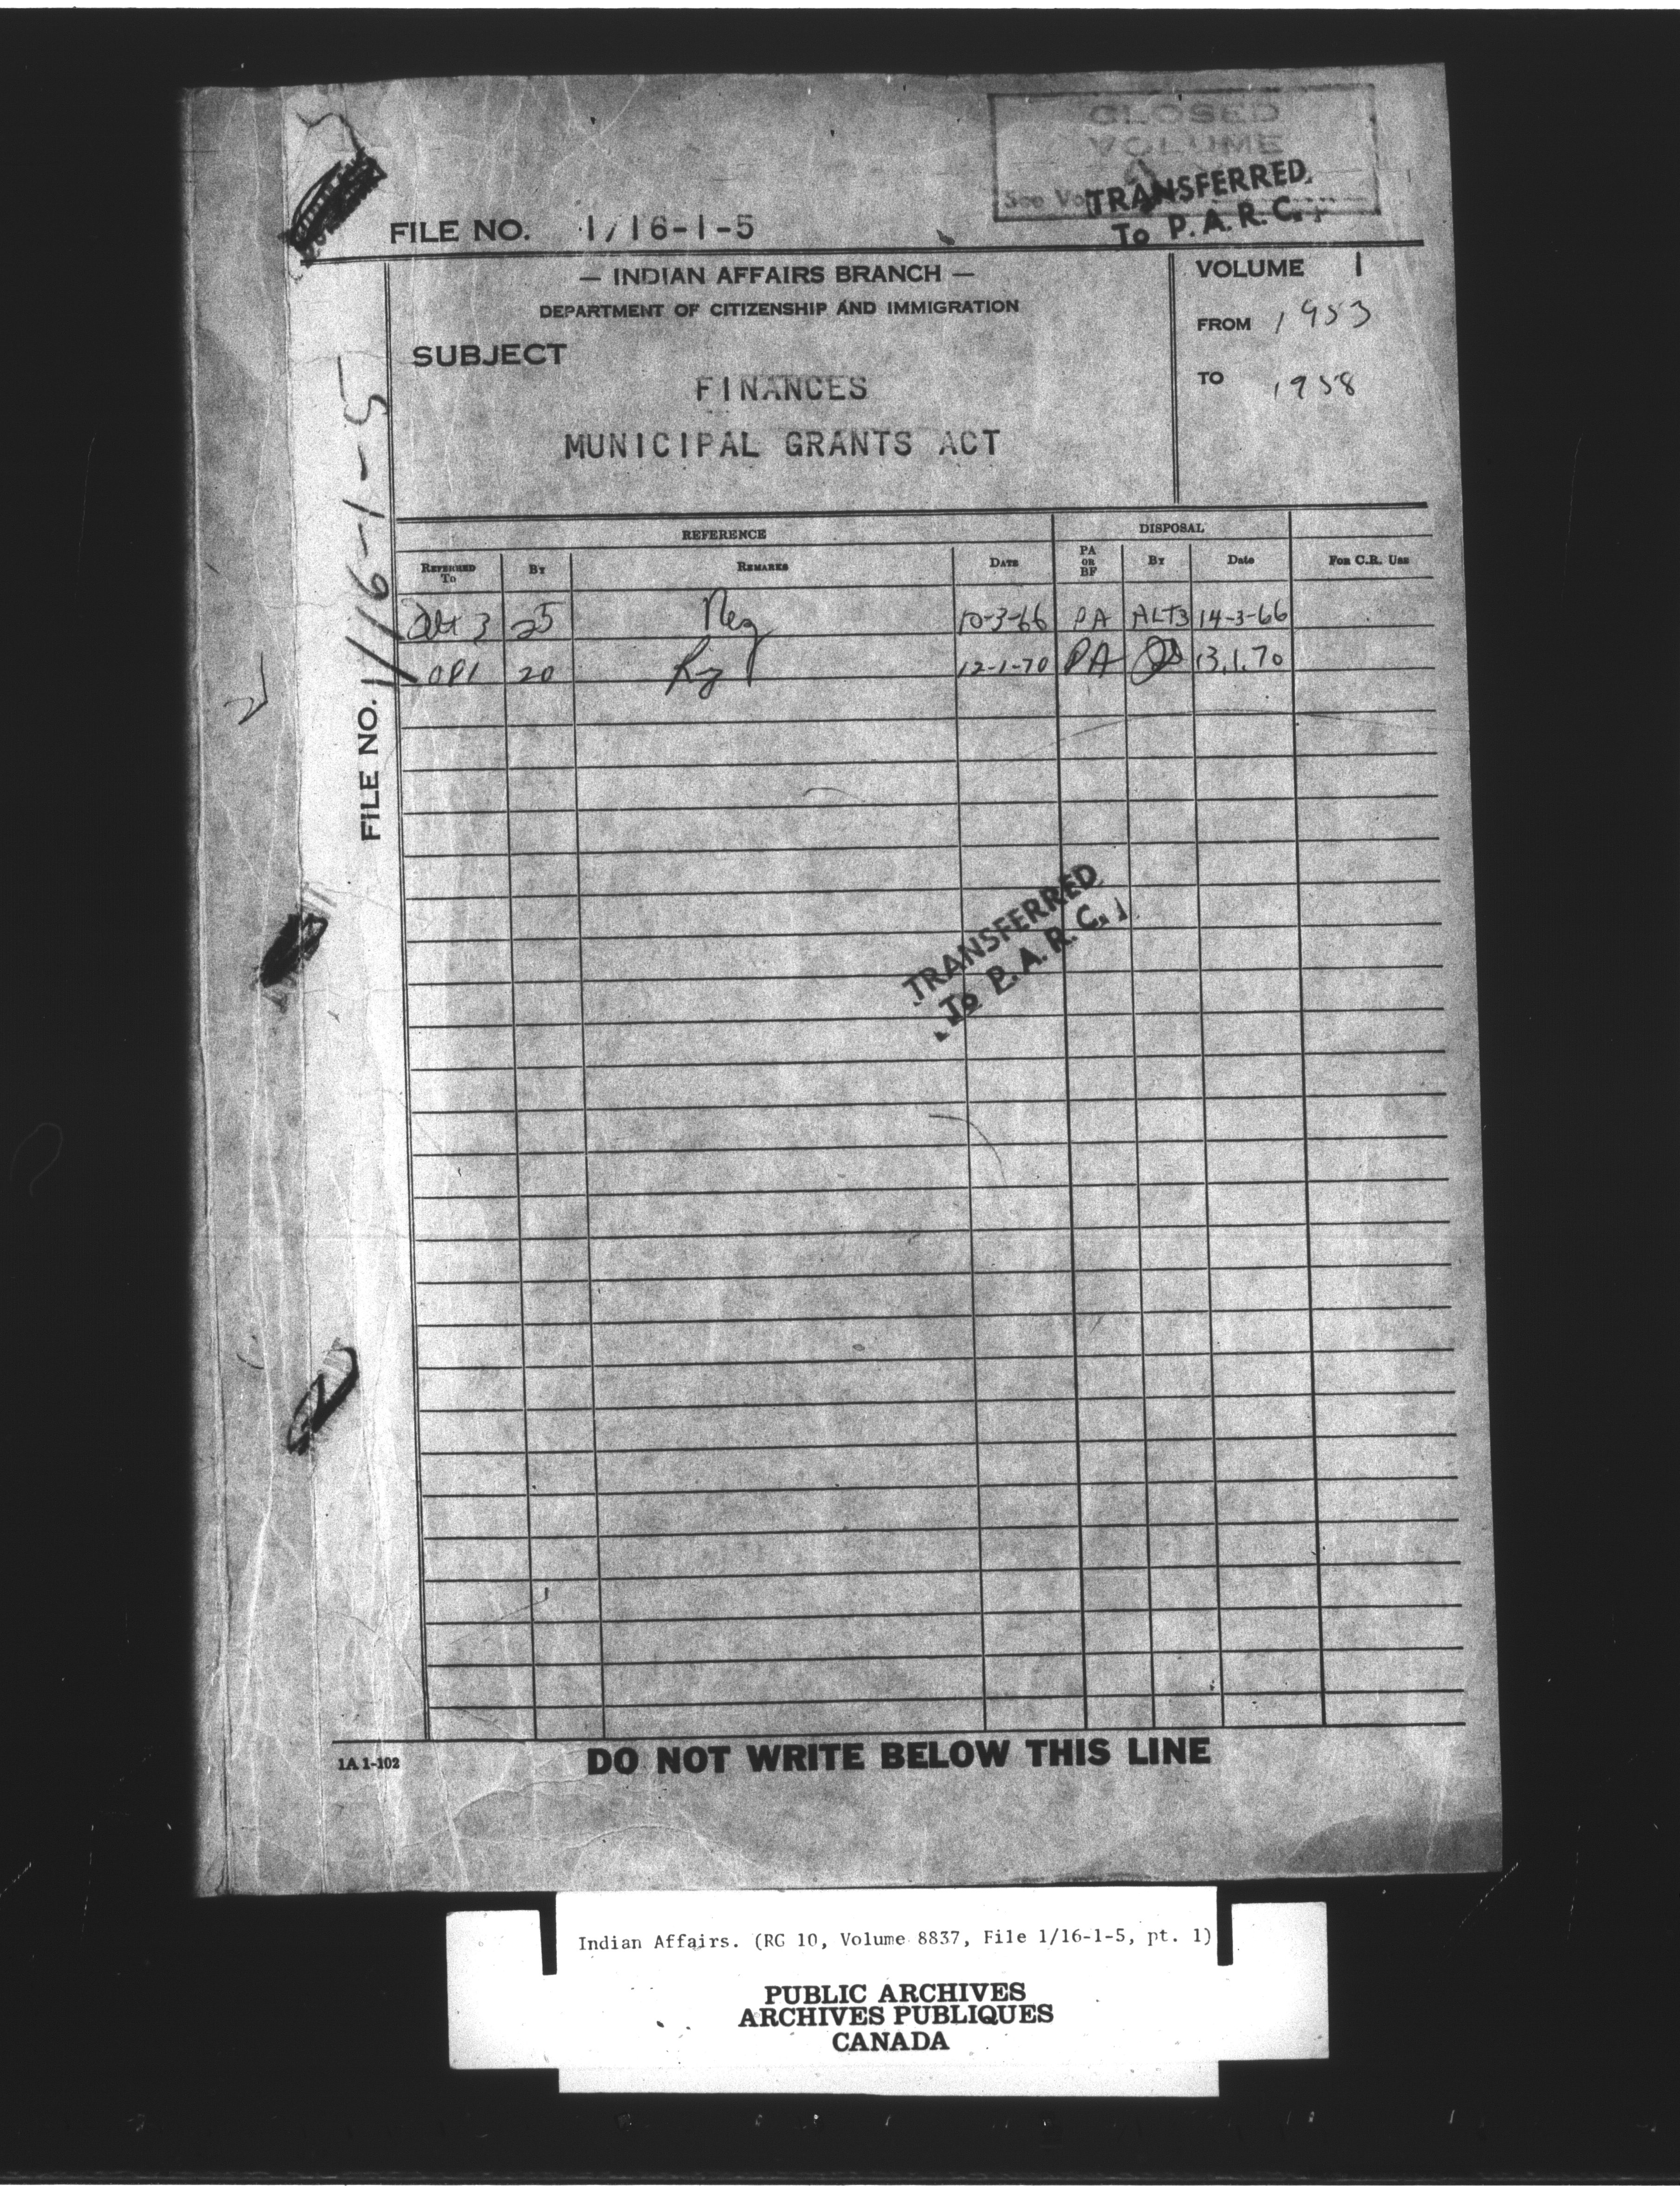 CLOSED
VOLUME
See Vo
TRANSFERRED
To P.A.R.C.
FILE NO. 1/16-1-5
— INDIAN AFFAIRS BRANCH —
DEPARTMENT OF CITIZENSHIP AND IMMIGRATION
SUBJECT
FINANCES
MUNICIPAL GRANTS ACT
VOLUME 1
FROM 1953
TO 1958
FILE NO. 1/16-1-5
REFERENCE DISPOSAL
REFERRED To BY REMARKS DATE PA OR BF BY Date FOR C.R. USE
3 25 Req 10-3-66 PA ALT3 14-3-66
OP1 20 Rq 12-1-70 PA 13.1.70
TRANSFERRED
To P.A.R.C.
1A 1-102
DO NOT WRITE BELOW THIS LINE
Indian Affairs. (RG 10, Volume 8837, File 1/16-1-5, pt. 1)
PUBLIC ARCHIVES
ARCHIVES PUBLIQUES
CANADA